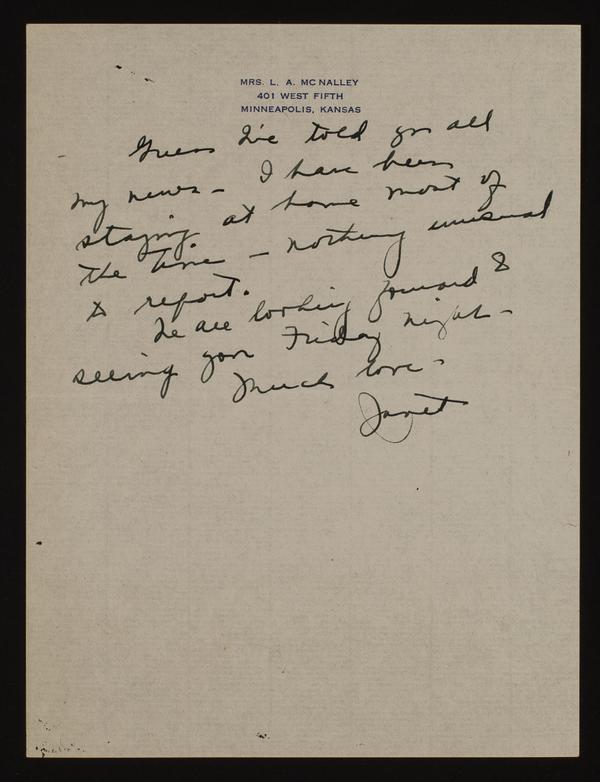 MRS. L. A. MCNALLEY
401 WEST FIFTH
MINNEAPOLIS, KANSAS
Guess I've told you all
my news – I have been
staying at home most of
the time – nothing unusual
to report.
We are looking forward to
seeing you Friday night –
Much love –
Janet